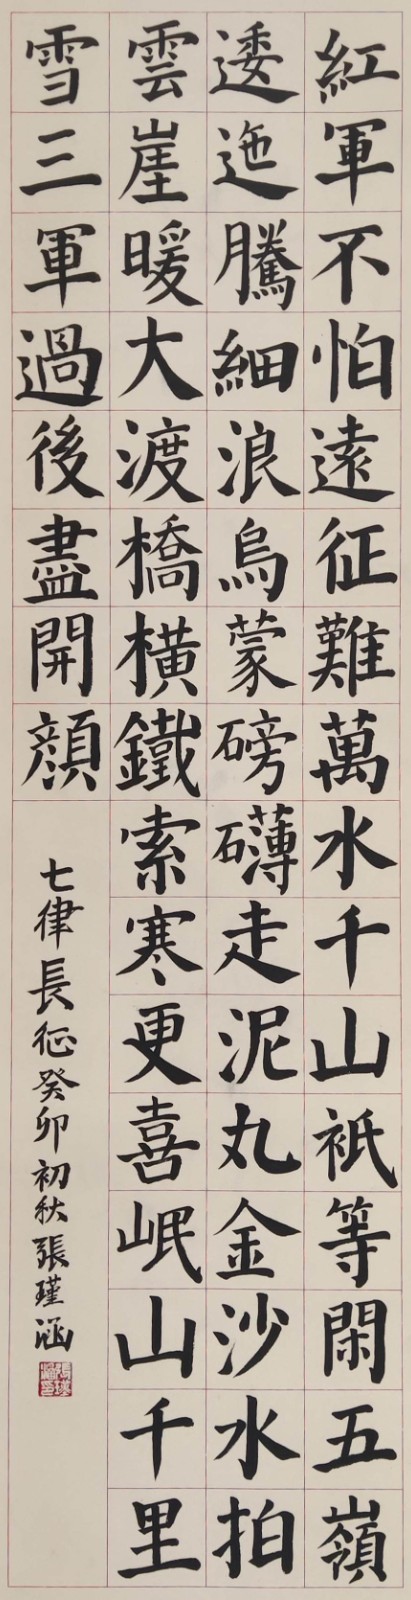 紅軍不怕遠征難萬水千山祇等閑五嶺
逶迤騰細浪烏蒙磅礴走泥丸金沙水拍
雲崖暖大渡橋橫鐵索寒更喜岷山千里
雪三軍過後盡開顏
七律長征癸卯初秋張瑾涵